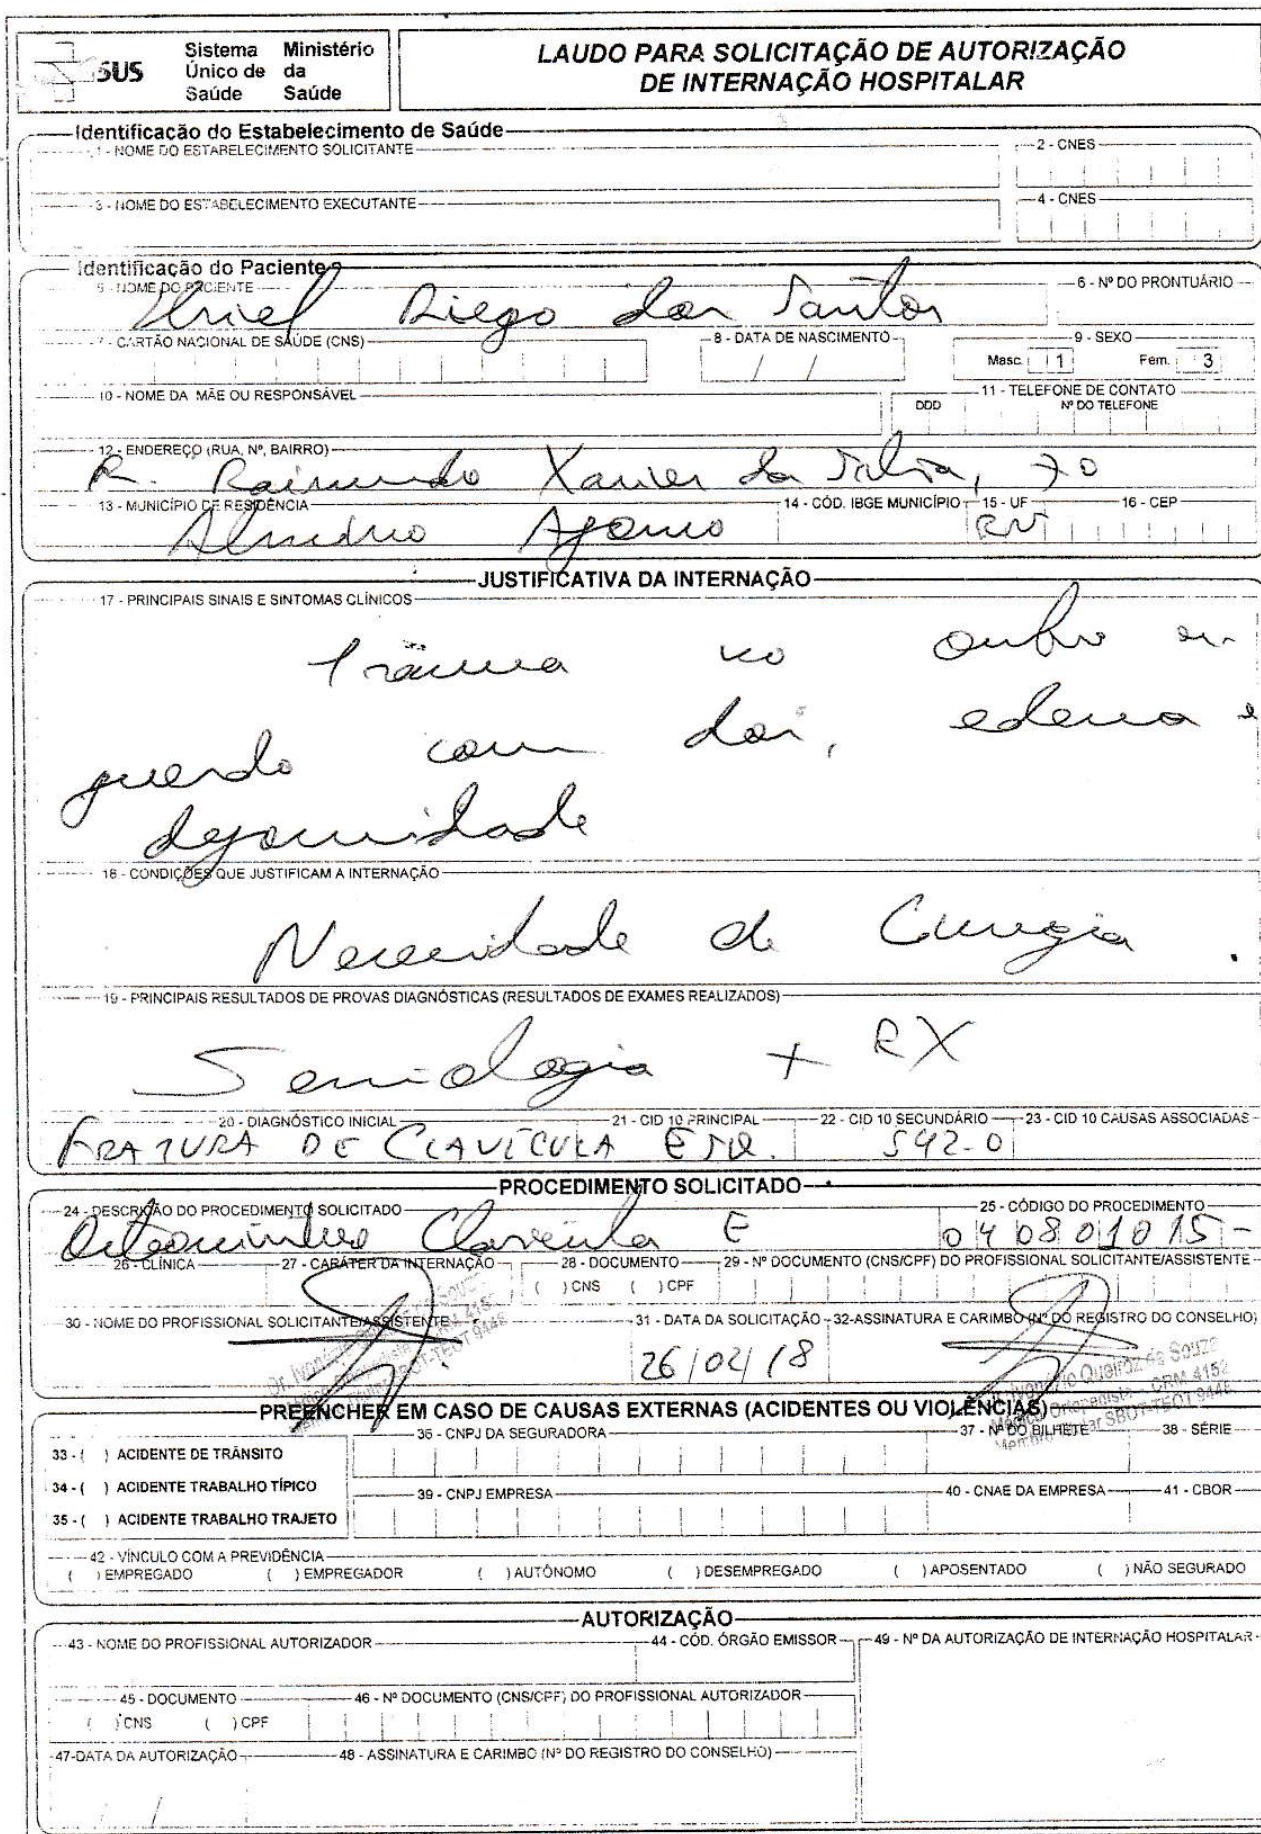 SUS
Sistema Único de Saúde
Ministério da Saúde
LAUDO PARA SOLICITAÇÃO DE AUTORIZAÇÃO
DE INTERNAÇÃO HOSPITALAR
Identificação do Estabelecimento de Saúde
1 - NOME DO ESTABELECIMENTO SOLICITANTE
2 - CNES
3 - NOME DO ESTABELECIMENTO EXECUTANTE
4 - CNES
Identificação do Paciente
5 - NOME DO PACIENTE
6 - Nº DO PRONTUÁRIO
Diego dos Santos
7 - CARTÃO NACIONAL DE SAÚDE (CNS)
8 - DATA DE NASCIMENTO
9 - SEXO
/ /
Masc. 1 Fem. 3
10 - NOME DA MÃE OU RESPONSÁVEL
11 - TELEFONE DE CONTATO
DDD Nº DO TELEFONE
12 - ENDEREÇO (RUA, Nº, BAIRRO)
R. Raimundo Xavier da Silva, 70
13 - MUNICÍPIO DE RESIDÊNCIA
14 - CÓD. IBGE MUNICÍPIO
15 - UF
16 - CEP
Almino Afonso RN
JUSTIFICATIVA DA INTERNAÇÃO
17 - PRINCIPAIS SINAIS E SINTOMAS CLÍNICOS
Trauma no ombro es-
querdo com dor, edema e
deformidade
18 - CONDIÇÕES QUE JUSTIFICAM A INTERNAÇÃO
Necessidade de Cirurgia.
19 - PRINCIPAIS RESULTADOS DE PROVAS DIAGNÓSTICAS (RESULTADOS DE EXAMES REALIZADOS)
Semiologia + RX
20 - DIAGNÓSTICO INICIAL
21 - CID 10 PRINCIPAL
22 - CID 10 SECUNDÁRIO
23 - CID 10 CAUSAS ASSOCIADAS
FRATURA DE CLAVÍCULA ESQ. S42.0
PROCEDIMENTO SOLICITADO
24 - DESCRIÇÃO DO PROCEDIMENTO SOLICITADO
25 - CÓDIGO DO PROCEDIMENTO
Osteossíntese Clavícula E 040801015-
26 - CLÍNICA
27 - CARÁTER DA INTERNAÇÃO
28 - DOCUMENTO
29 - Nº DOCUMENTO (CNS/CPF) DO PROFISSIONAL SOLICITANTE/ASSISTENTE
( ) CNS ( ) CPF
30 - NOME DO PROFISSIONAL SOLICITANTE/ASSISTENTE
31 - DATA DA SOLICITAÇÃO
32-ASSINATURA E CARIMBO (Nº DO REGISTRO DO CONSELHO)
26/02/18
Queiroz de Souza
Médico Ortopedista - CRM 4152
Membro Titular SBOT-TEOT 9448
PREENCHER EM CASO DE CAUSAS EXTERNAS (ACIDENTES OU VIOLÊNCIAS)
33 - ( ) ACIDENTE DE TRÂNSITO
36 - CNPJ DA SEGURADORA
37 - Nº DO BILHETE
38 - SÉRIE
34 - ( ) ACIDENTE TRABALHO TÍPICO
39 - CNPJ EMPRESA
40 - CNAE DA EMPRESA
41 - CBOR
35 - ( ) ACIDENTE TRABALHO TRAJETO
42 - VÍNCULO COM A PREVIDÊNCIA
( ) EMPREGADO ( ) EMPREGADOR ( ) AUTÔNOMO ( ) DESEMPREGADO ( ) APOSENTADO ( ) NÃO SEGURADO
AUTORIZAÇÃO
43 - NOME DO PROFISSIONAL AUTORIZADOR
44 - CÓD. ÓRGÃO EMISSOR
49 - Nº DA AUTORIZAÇÃO DE INTERNAÇÃO HOSPITALAR
45 - DOCUMENTO
46 - Nº DOCUMENTO (CNS/CPF) DO PROFISSIONAL AUTORIZADOR
( ) CNS ( ) CPF
47-DATA DA AUTORIZAÇÃO
48 - ASSINATURA E CARIMBO (Nº DO REGISTRO DO CONSELHO)
/ /